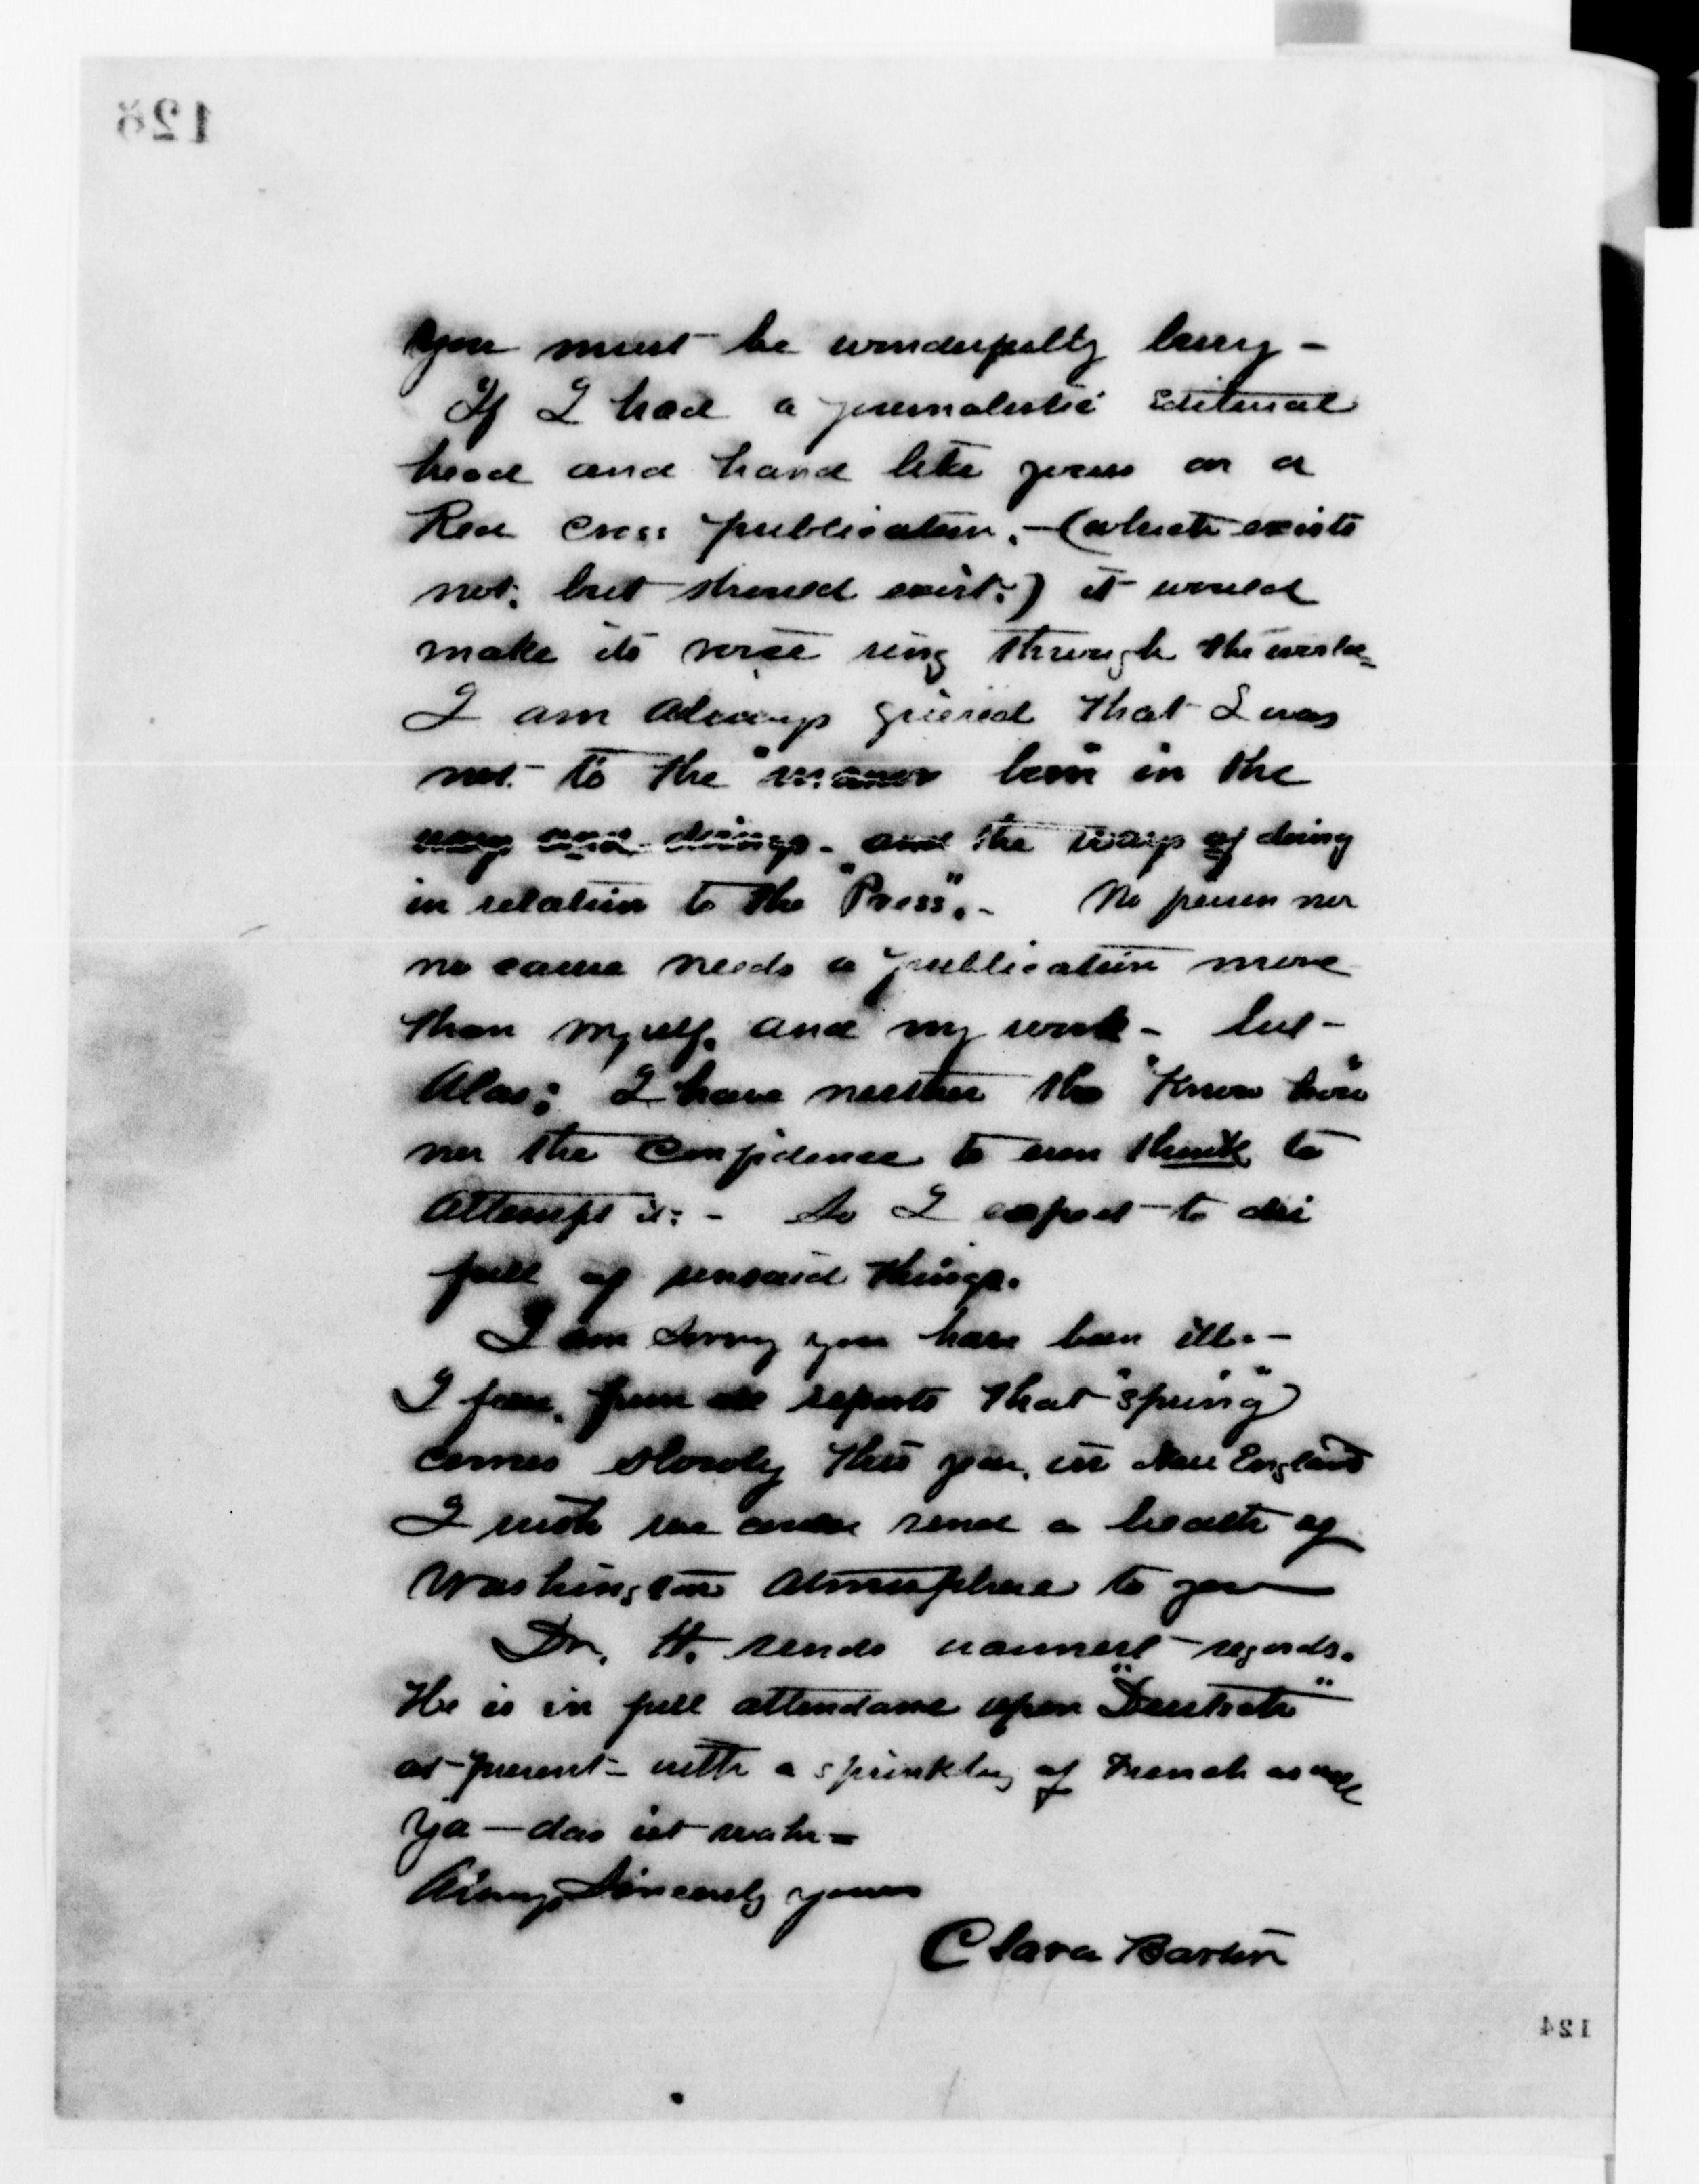 126
you must be wonderfully busy -
If I had a journalistic Editorial
head and hand like yours on a
Red Cross publication, - (which exists
not, but should exist,) it would
make its voice ring through the world -
I am always grieved that I was
not - to the "manor born" in the
ways and doings - and the ways of doing
in relation to the "Press". - No person nor
no cause needs a publication more
than myself, and my work - but -
Alas; I have neither the "Know how"
nor the confidence to even think to
attempt it; - So I expect to die
full of unsaid things.
I am sorry you have been ill. -
I fear, from all reports that "spring"
comes slowly this year, in New England
I wish we could send a breath of
Washington atmosphere to you
Dr. H. sends warmest regards.
He is in full attendance upon "Deutsch"
at present - with a sprinkling of French as well
Ya - das ist wahr -
Always Sincerely yours
Clara Barton
124